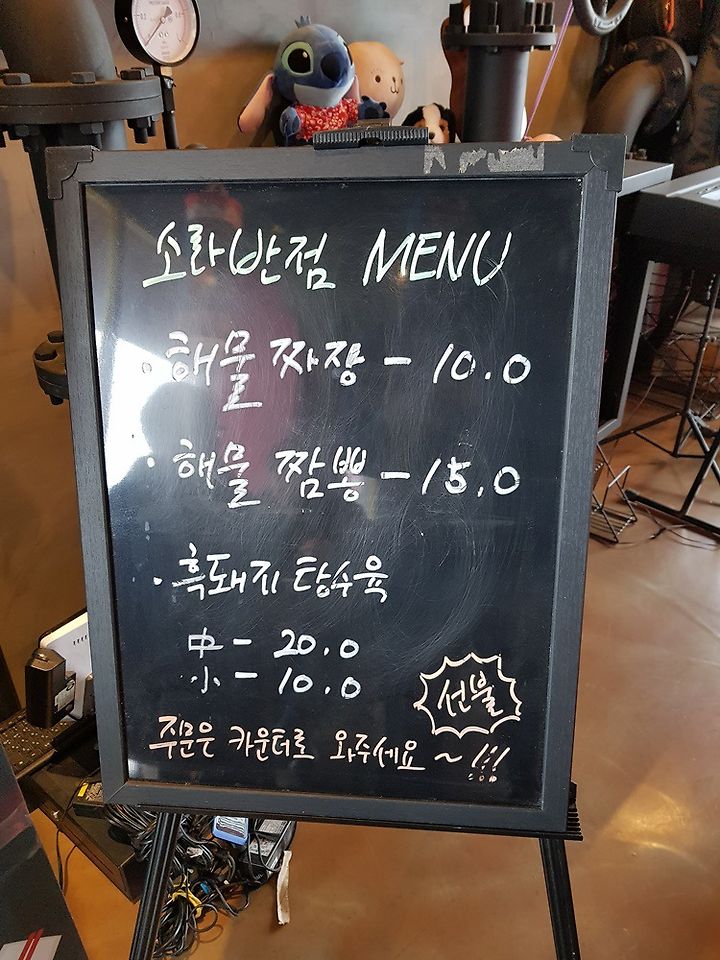 소라반점 MENU
· 해물 짜장 - 10.0
· 해물 짬뽕 - 15.0
· 흑돼지 탕수육
中 - 20.0
小 - 10.0
선불
주문은 카운터로 와주세요~!!!